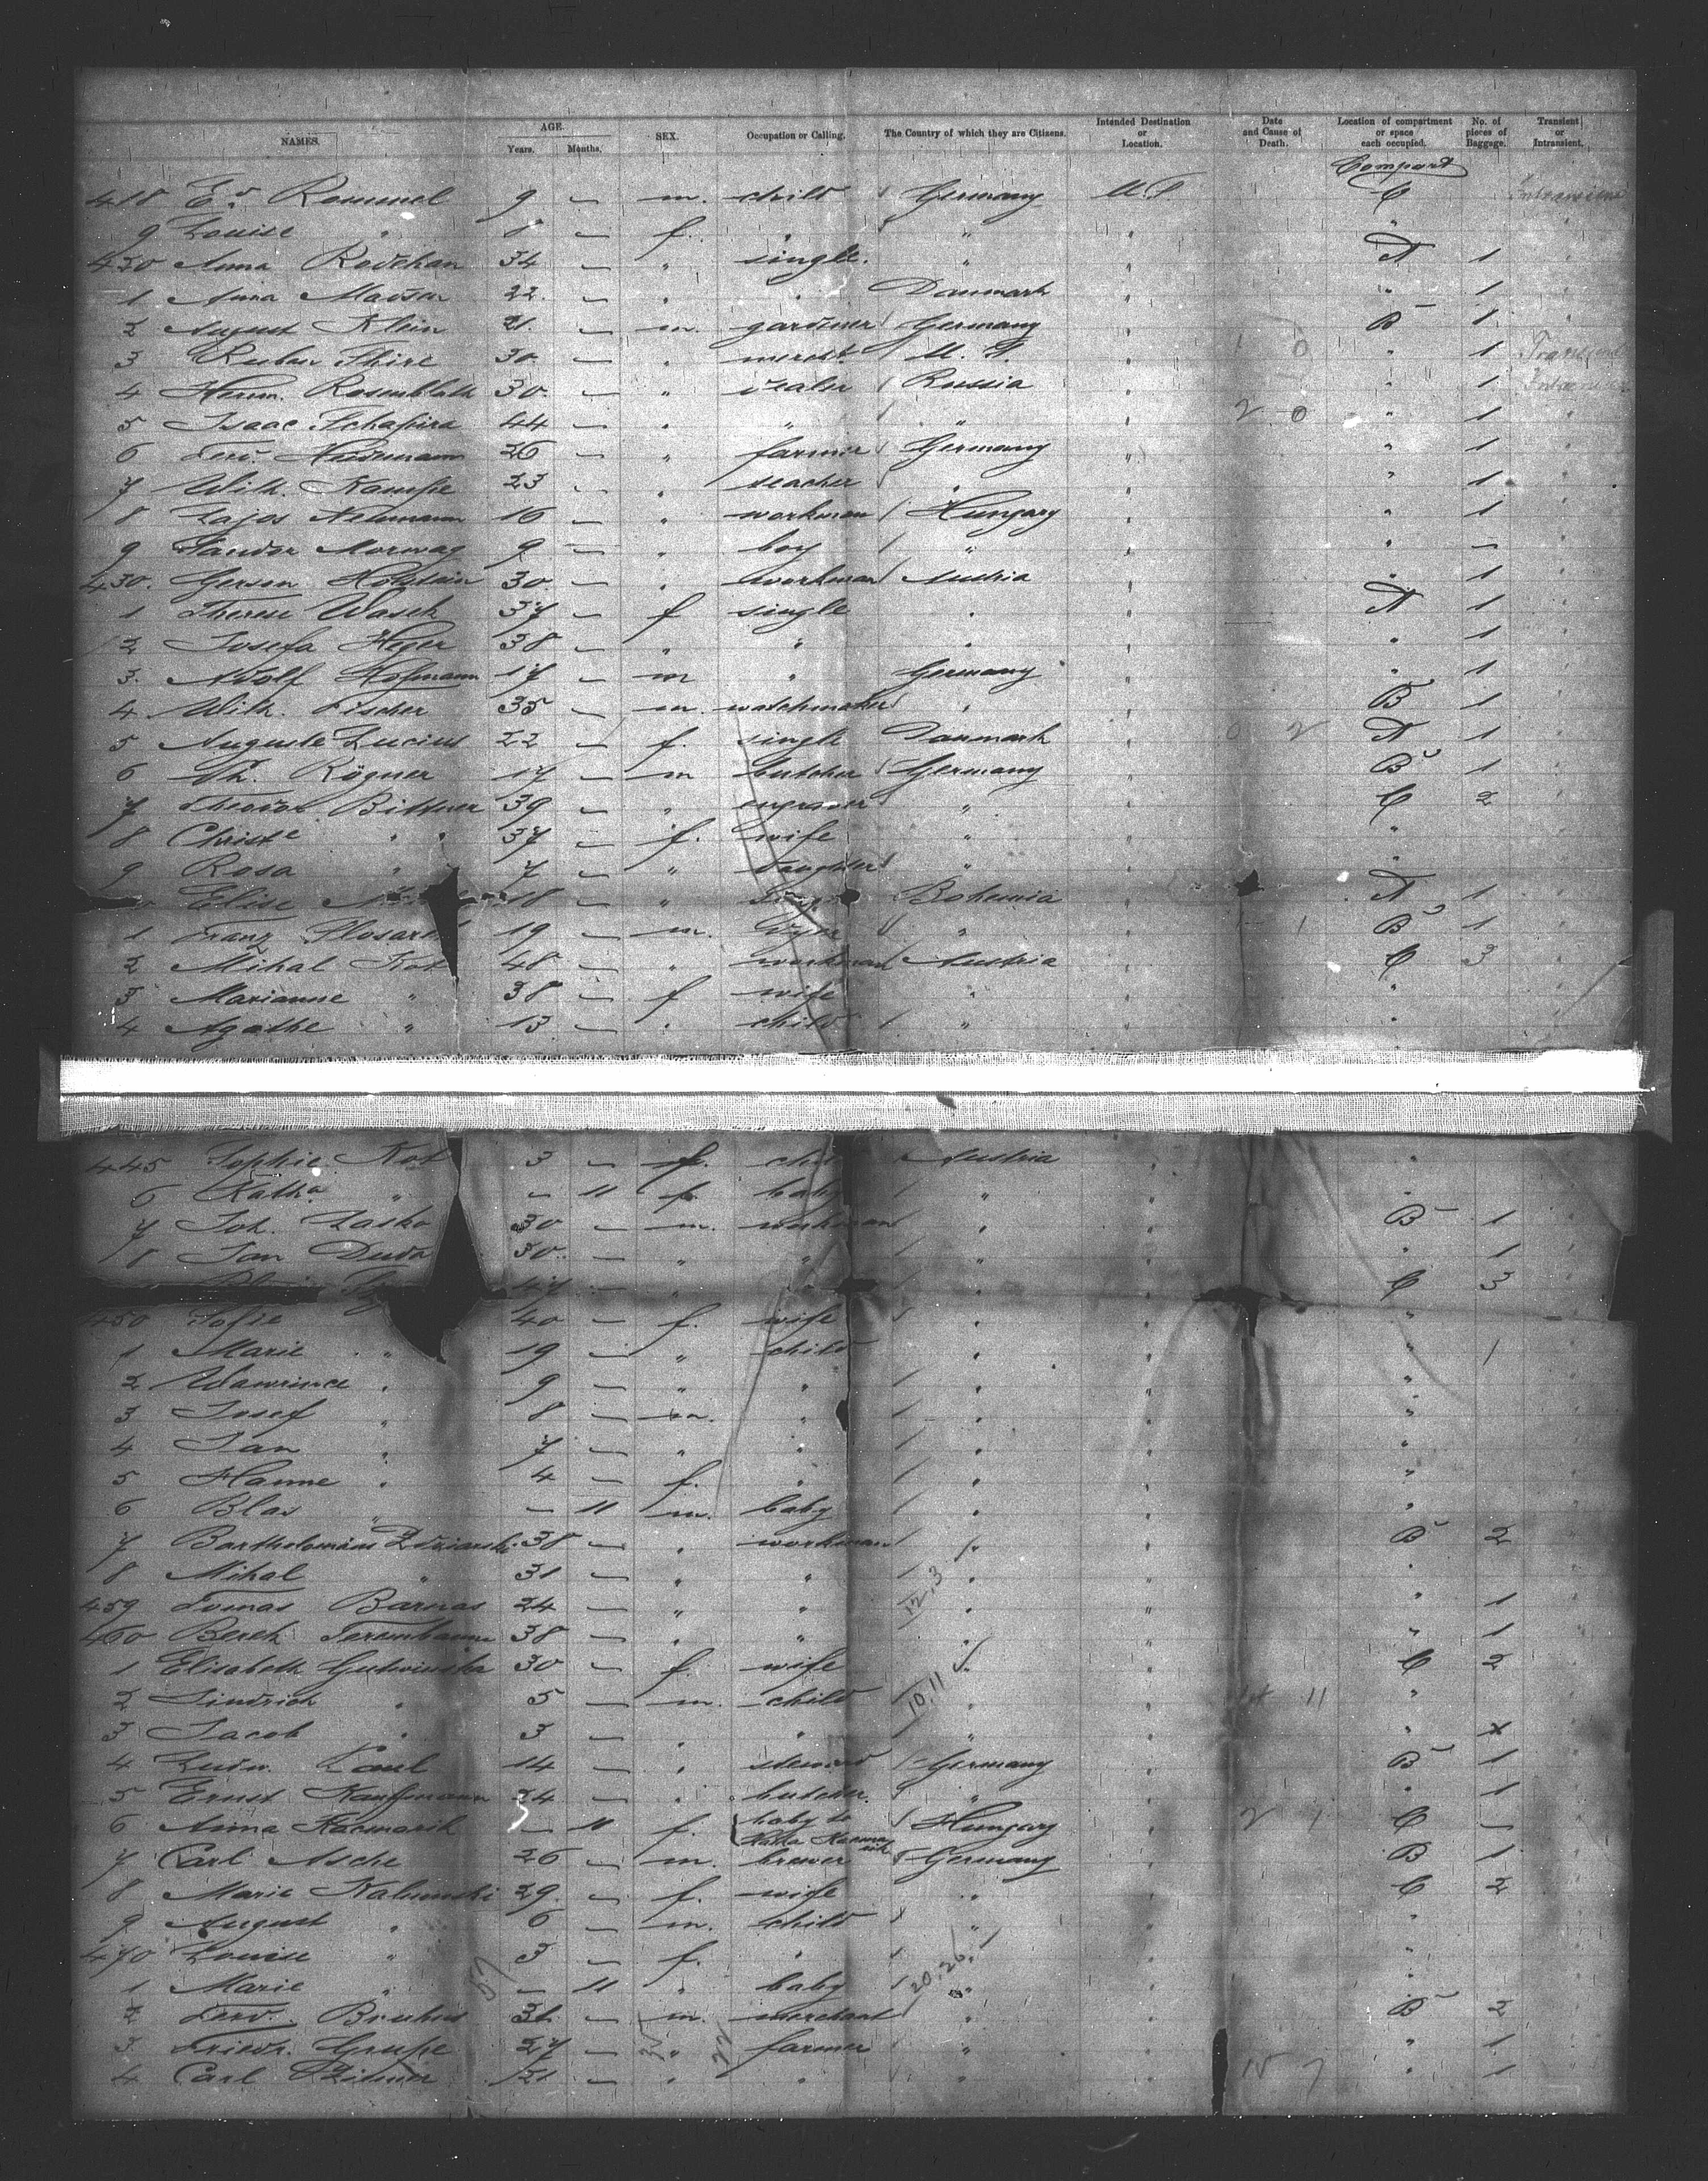 NAMES. AGE. Years. Months. SEX. Occupation or Calling. The Country of which they are Citizens. Intended Destination or Location. Date and Cause of Death. Location of compartment or space each occupied. No. of pieces of Baggage. Transient or Intransient.
Compart
418 Ed. Rommel 9 — m. child Germany U.S. C
9 Louise " 8 — f. " " " "
420 Anna Rodehan 34 — " single. " " A 1
1 Anna Madsen 22 — " " Danmark " " 1
2 August Klein 21. — m. gardener Germany " B 1
3 Ruben 30. — " mercht. U.S. " " 1
4 Herm. Rosenblath 30. — " dealer Russia " " 1
5 Isaac Schapira 44 — " " " " " 1
6 Ferd. 26 — " farmer Germany " " 1
7 Wilh. Kampe 23 — " teacher " " " 1
8 Lajos Neumann 16 — " workman Hungary " " 1
9 Sandor 9 — " boy " " " —
430. Gerson Holstein 30. — " workman Austria " " 1
1 Therese Wasch 37 — f single " " A 1
2 Josefa Heger 38 — " " " " " 1
3. Adolf Hofmann 17 — m " Germany " " 1
4 Wilh. Fischer 35 — m. watchmaker " " B 1
5 Auguste Lucius 22 — f. single Danmark " A 1
6 Th. Rögner 17 — m butcher Germany " B 1
7 Theodor Bittner 39 — " engraver " " C 2
8 Christe " 37 — f. wife " " "
9 Rosa " 7 — " daughter " " "
Elise 18 — " Bohemia " A 1
1 Franz 19 — m. " " B 1
2 Mihal Kot 48 — " workman Austria " C 3
3 Marianne " 38 — f wife " " "
4 Agathe " 13 — " child " " "
445 Sophie Kot 3 — f. Austria " "
6 Katha " — 11 f. baby " " "
7 Joh. Lasko 30 — m. workman " " B 1
8 Jan Duda 30. — " " " " " 1
47 — " " C 3
450 Sofie 40 — f. wife " " "
1 Marie " 19 — " child " " " 1
2 Wawrince " 9 — " " " " "
3 Josef " 8 — m. " " " "
4 Jan " 7 — " " " " "
5 Hanne " 4 — f. " " " "
6 Blas " — 11 m. baby " " "
7 38 — " workman " " B 2
8 Mihal " 31 — " " " " "
459 Tomas Barnas 24 — " " " " " 1
460 Berch 38 — " " " " " 1
1 Elisabeth 30 — f. wife " " C 2
2 " 5 — m. child " " "
3 Jacob " 3 — " " " " "
4 Ludw. 14 — " Germany " B 1
5 Ernst Kauffmann 24 — " butcher. " " " 1
6 Anna Kacmarik — 11 f. baby to Hungary " C —
7 Carl Asche 26 — m. brewer Germany " B 1
8 Marie 29. — f. wife " " C 2
9 August " 6 — m. child " " "
470 Louise " 3 — f. " " " "
1 Marie " — 11 " baby " " "
2 Ferd. 31. — m. merchant " " B 2
3. Friedr. Grupe 27 — " farmer " " " 1
4 Carl 21 — " " " " " 1